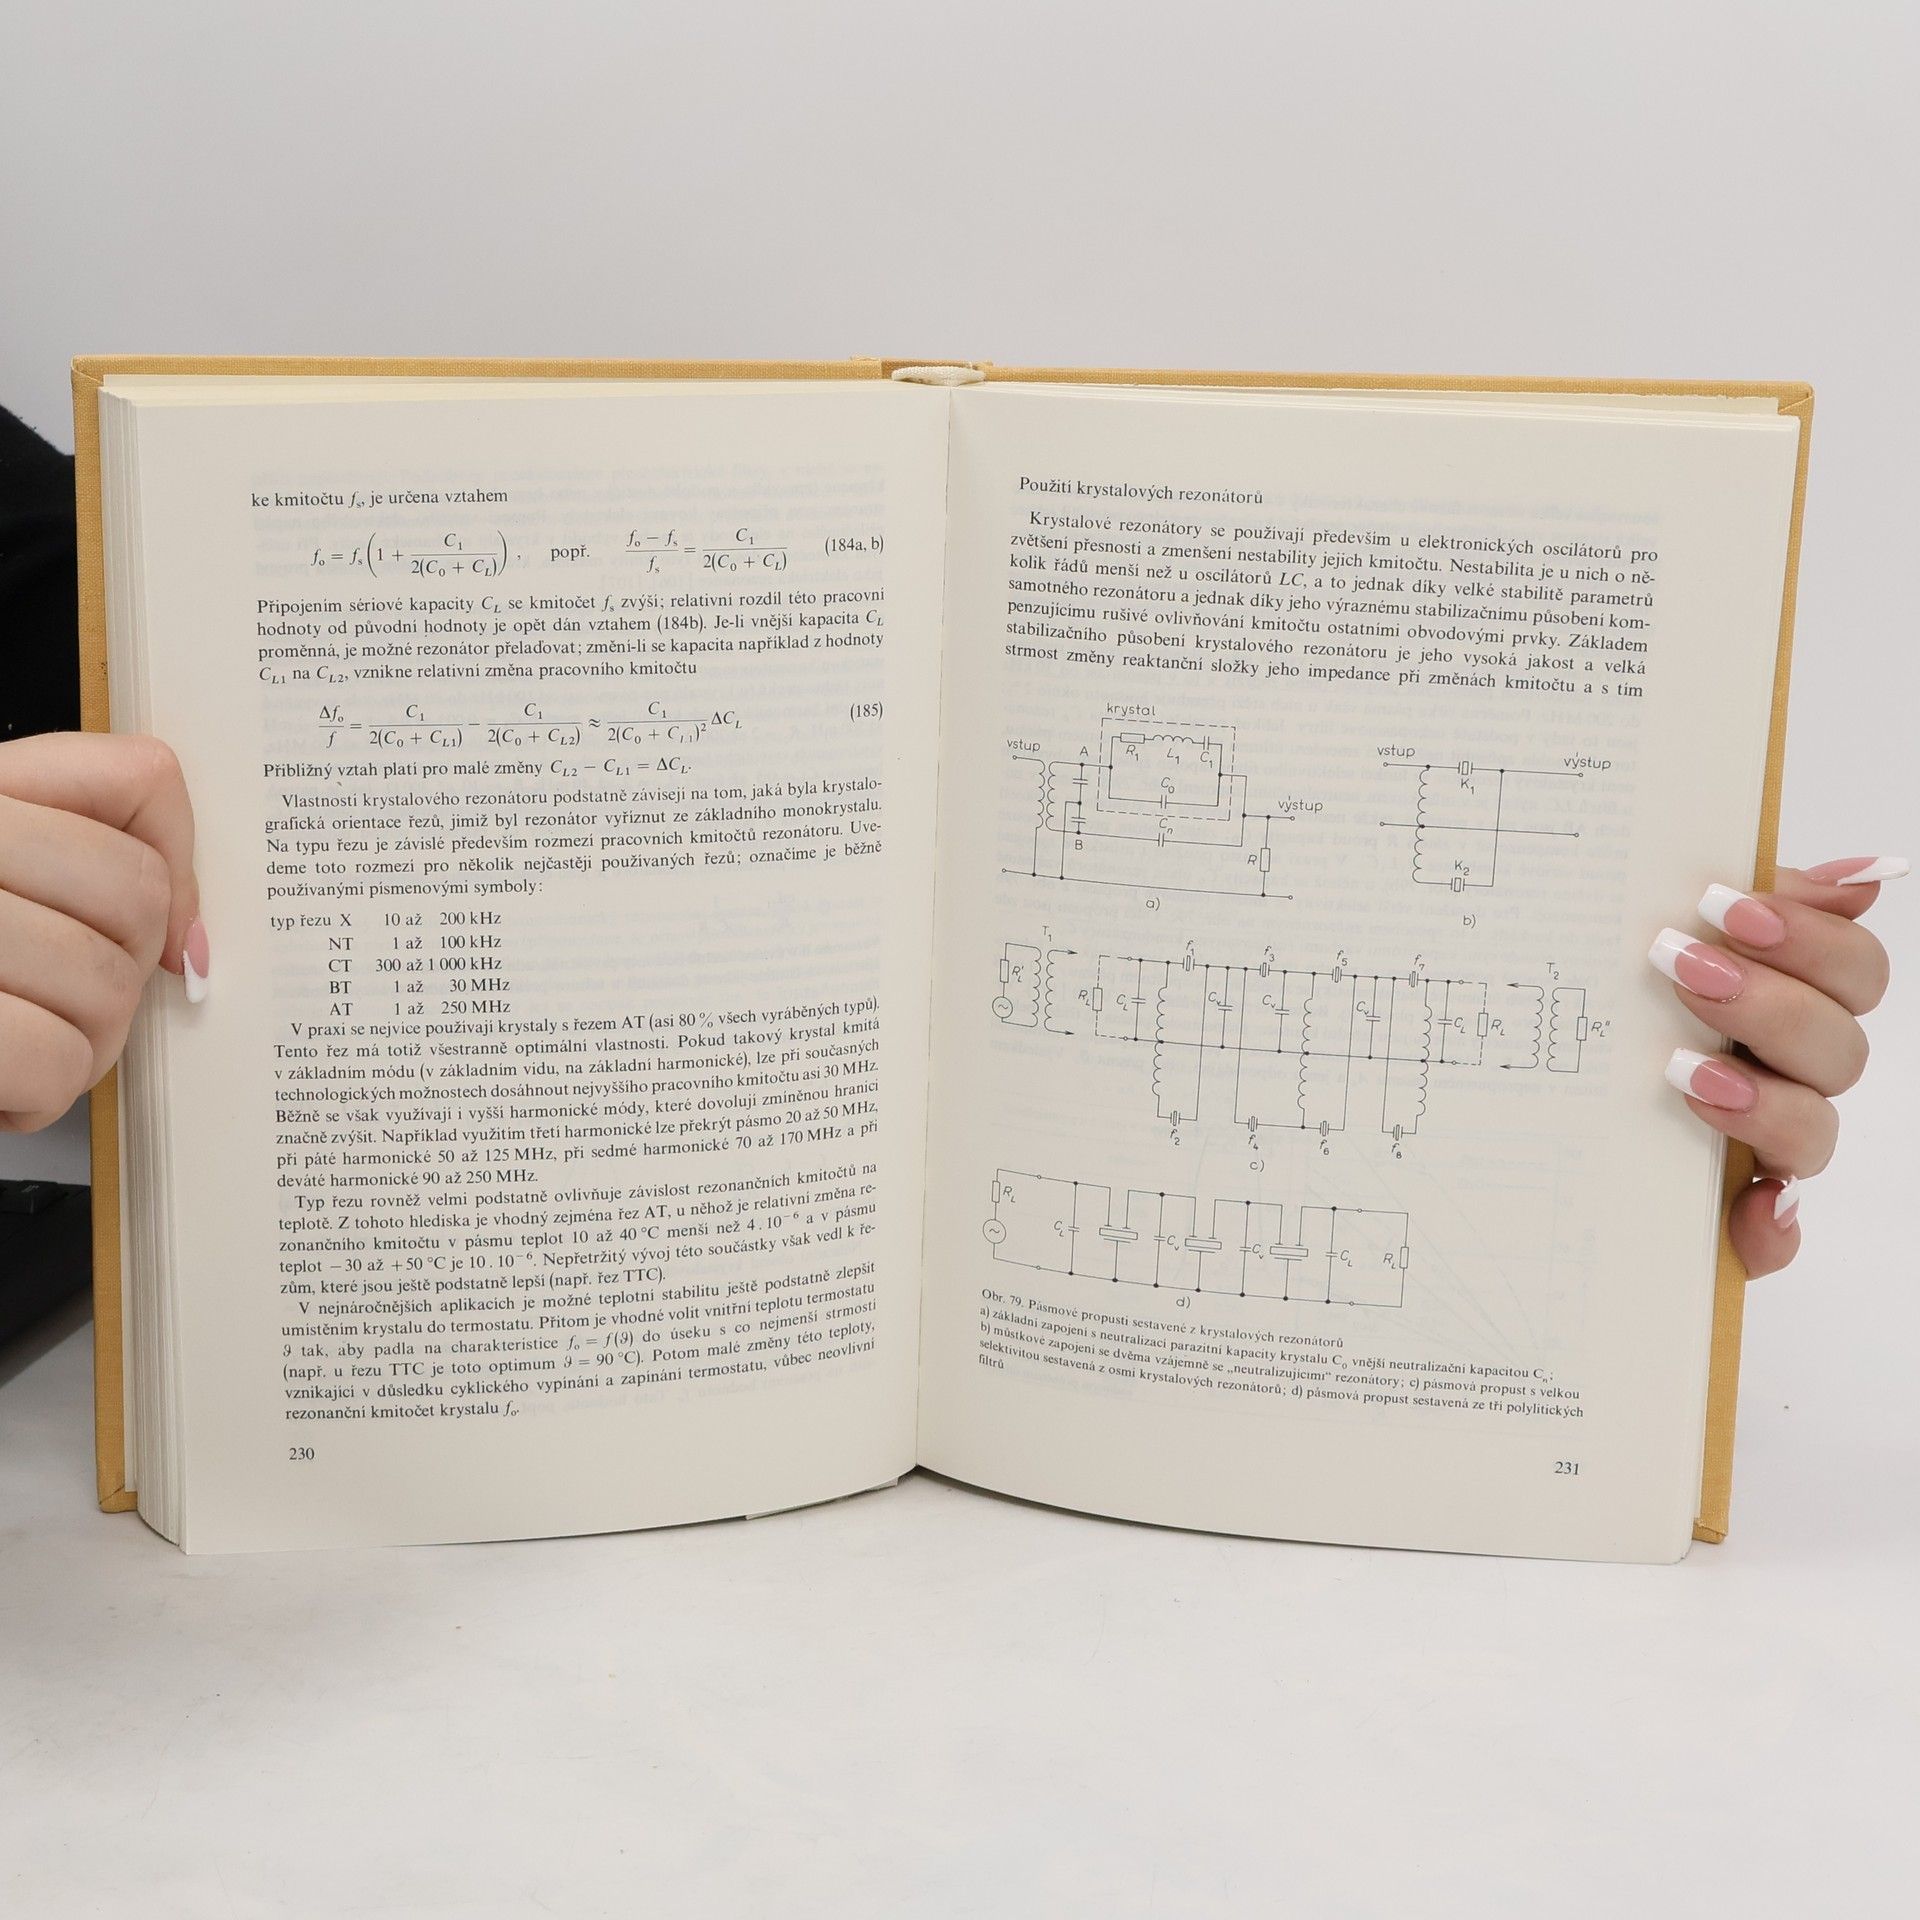 ke kmitočtu fₛ, je určena vztahem
fₒ = fₛ(1 + C₁ / 2(C₀ + C_L)), popř. (fₒ − fₛ) / fₛ = C₁ / 2(C₀ + C_L) (184a, b)
Připojením sériové kapacity C_L se kmitočet fₛ zvýší; relativní rozdíl této pracovní
hodnoty od původní hodnoty je opět dán vztahem (184b). Je-li vnější kapacita C_L
proměnná, je možné rezonátor přelaďovat; změní-li se kapacita například z hodnoty
C_L1 na C_L2, vznikne relativní změna pracovního kmitočtu
Δfₒ / f = C₁ / 2(C₀ + C_L1) − C₁ / 2(C₀ + C_L2) ≈ C₁ / 2(C₀ + C_L1)² ΔC_L (185)
Přibližný vztah platí pro malé změny C_L2 − C_L1 = ΔC_L.
Vlastnosti krystalového rezonátoru podstatně závisejí na tom, jaká byla krystalo-
grafická orientace řezů, jimiž byl rezonátor vyříznut ze základního monokrystalu.
Na typu řezu je závislé především rozmezí pracovních kmitočtů rezonátoru. Uve-
deme toto rozmezí pro několik nejčastěji používaných řezů; označíme je běžně
používanými písmenovými symboly:
typ řezu X 10 až 200 kHz
NT 1 až 100 kHz
CT 300 až 1 000 kHz
BT 1 až 30 MHz
AT 1 až 250 MHz
V praxi se nejvíce používají krystaly s řezem AT (asi 80 % všech vyráběných typů).
Tento řez má totiž všestranně optimální vlastnosti. Pokud takový krystal kmitá
v základním módu (v základním vidu, na základní harmonické), lze při současných
technologických možnostech dosáhnout nejvyššího pracovního kmitočtu asi 30 MHz.
Běžně se však využívají i vyšší harmonické módy, které dovolují zmíněnou hranici
značně zvýšit. Například využitím třetí harmonické lze překrýt pásmo 20 až 50 MHz,
při páté harmonické 50 až 125 MHz, při sedmé harmonické 70 až 170 MHz a při
deváté harmonické 90 až 250 MHz.
Typ řezu rovněž velmi podstatně ovlivňuje závislost rezonančních kmitočtů na
teplotě. Z tohoto hlediska je vhodný zejména řez AT, u něhož je relativní změna re-
zonančního kmitočtu v pásmu teplot 10 až 40 °C menší než 4 . 10⁻⁶ a v pásmu
teplot −30 až +50 °C je 10 . 10⁻⁶. Nepřetržitý vývoj této součástky však vedl k ře-
zům, které jsou ještě podstatně lepší (např. řez TTC).
V nejnáročnějších aplikacích je možné teplotní stabilitu ještě podstatně zlepšit
umístěním krystalu do termostatu. Přitom je vhodné volit vnitřní teplotu termostatu
ϑ tak, aby padla na charakteristice fₒ = f(ϑ) do úseku s co nejmenší strmostí
(např. u řezu TTC je toto optimum ϑ = 90 °C). Potom malé změny této teploty,
vznikající v důsledku cyklického vypínání a zapínání termostatu, vůbec neovlivní
rezonanční kmitočet krystalu fₒ.
230
Použití krystalových rezonátorů
Krystalové rezonátory se používají především u elektronických oscilátorů pro
zvětšení přesnosti a zmenšení nestability jejich kmitočtu. Nestabilita je u nich o ně-
kolik řádů menší než u oscilátorů LC, a to jednak díky velké stabilitě parametrů
samotného rezonátoru a jednak díky jeho výraznému stabilizačnímu působení kom-
penzujícímu rušivé ovlivňování kmitočtu ostatními obvodovými prvky. Základem
stabilizačního působení krystalového rezonátoru je jeho vysoká jakost a velká
strmost změny reaktanční složky jeho impedance při změnách kmitočtu a s tím
krystal
vstup A R₁ L₁ C₁
C₀
výstup
Cₙ
B
R
a)
vstup výstup
K₁
K₂
b)
T₁ f₁ f₃ f₅ f₇ T₂
R_L' R_L C_L C_v C_v C_v C_L R_L R_L''
f₂ f₄ f₆ f₈
c)
R_L C_L C_v C_v C_L R_L
d)
Obr. 79. Pásmové propusti sestavené z krystalových rezonátorů
a) základní zapojení s neutralizací parazitní kapacity krystalu C₀ vnější neutralizační kapacitou Cₙ;
b) můstkové zapojení se dvěma vzájemně se „neutralizujícími“ rezonátory; c) pásmová propust s velkou
selektivitou sestavená z osmi krystalových rezonátorů; d) pásmová propust sestavená ze tří polylitických
filtrů
231